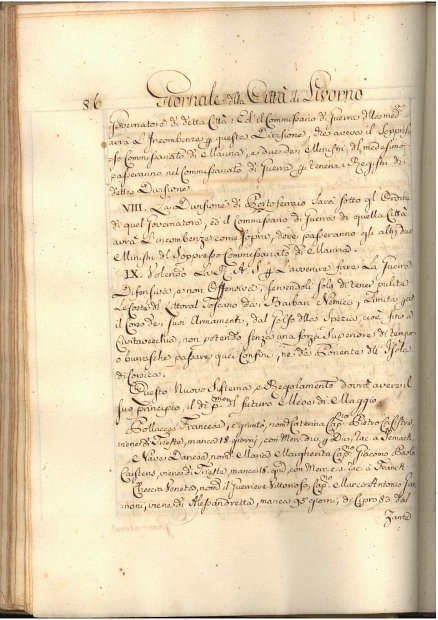 86 Giornale della Città di Livorno
Governatore di detta Città: Ed il Commissario di Guerra della med.ma
avrà l'Incombenze p. questa Divisione, che aveva il Soppres-
so Commissariato di Marina, e due dei Ministri del medesimo
passeranno nel Commissariato di Guerra p. tenere i Registri di
detta Divisione.
VIII. La Divisione di Portoferraio sarà sotto gl'Ordini
di quel Governatore, ed il Commissario di Guerra di quella Città
avrà l'incombenze come sopra, dove passeranno gli altri due
Ministri del Soppresso Commissariato di Marina.
IX. Volendo La R. A. S. p. l'avvenire fare La Guerra
Difensiva e non Offensiva, servendosi solo di tener pulite
Le Coste del Littoral Toscano dai Barbari Nemici, Limita p. ciò
il Corso dei suoi Armamenti, dal Golfo della Spezia, così fino a
Civitavecchia, non potendo senza una forza Superiore di tempo
o burrasche passare quei Confini, nè da Ponente dell'Isola
di Corsica.
Questo Nuovo Sistema, e Regolamento dovrà avere il
suo principio, il dì p.mo del futuro Mese di Maggio.
Pollacca Francese, è giunto, nom.a Caterina Cap.no Pietro
viene di Tripoli, manca 18 giorni, con Merc.
Nave Danese, nom.a Maria Margherita Cap.no Giacomo Paolo
viene di Tripoli, manca 18. g.ni, con Merc. e s. rac. a Franck
Checcia Veneta, nom.a il Guerriere Vittorioso, Cap.no Marco Antonio
viene di Alessandretta, manca 95 giorni, di Cipro 83. dal
Zante